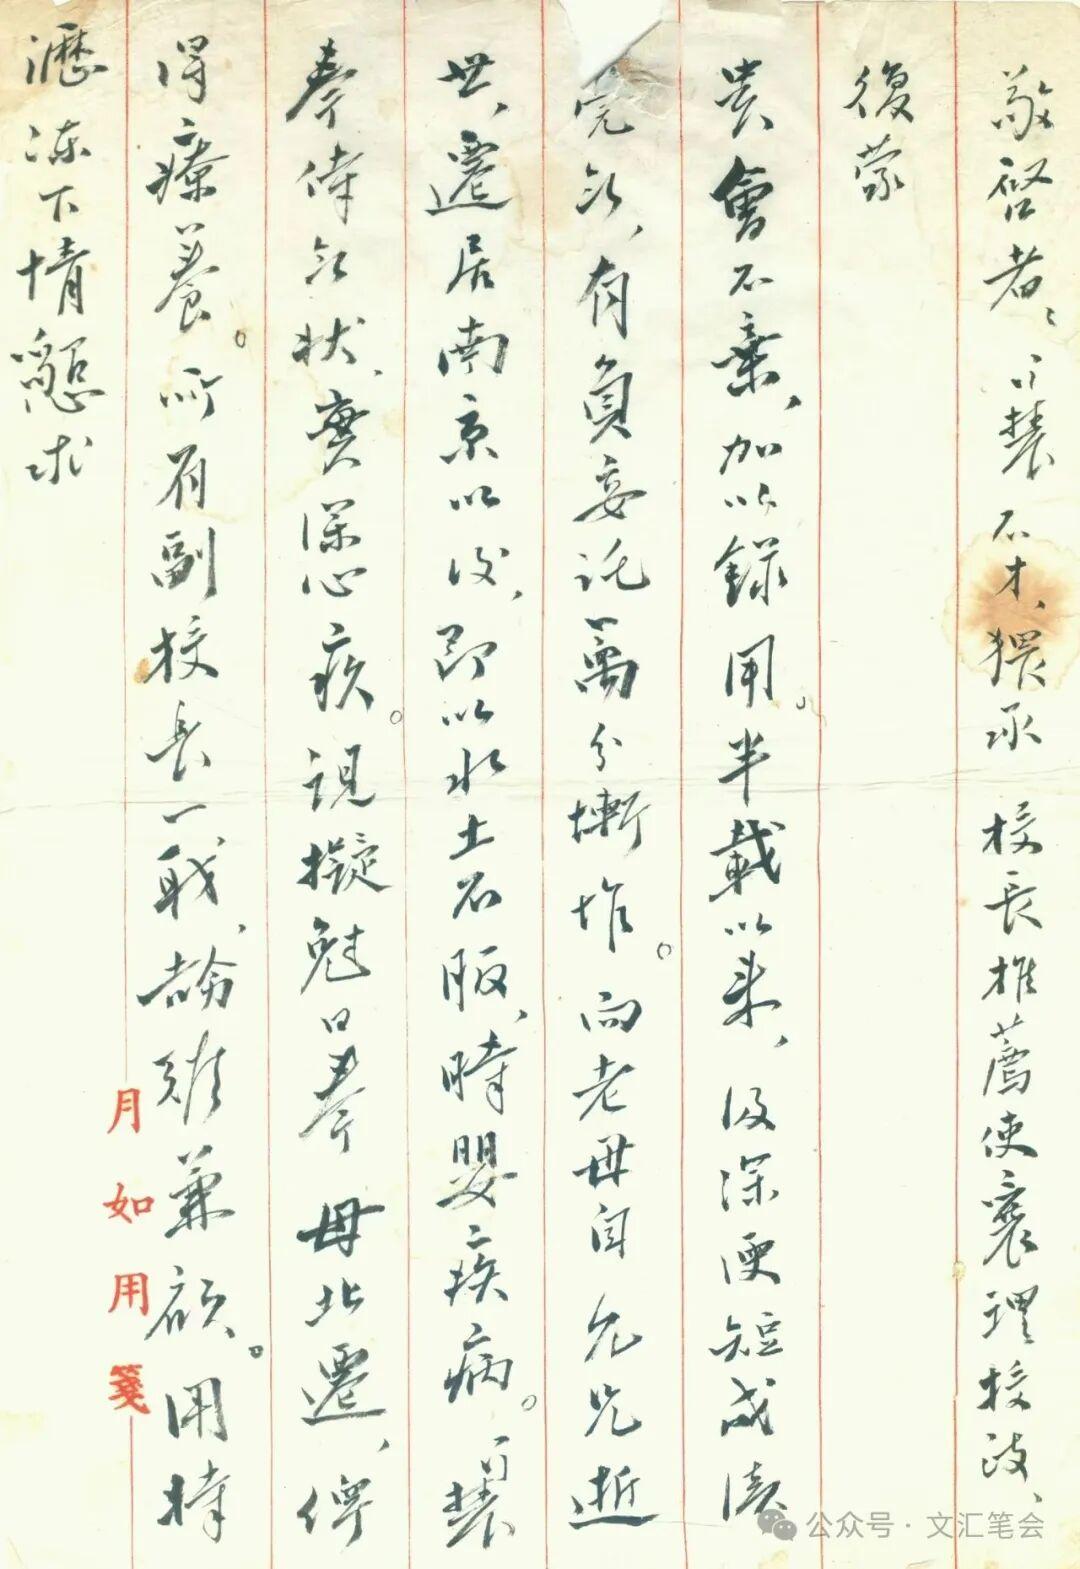 敬啓者、不才、猥承 校長推薦使襄理校政、
復蒙
貴會不棄、加以錄用。半載以來、汲深綆短成績
毫无、有負委託萬分慚怍。而老母自 先兄逝
世、遷居南京以後、即以水土不服、時嬰疾病。
奉侍无狀、實深心疚。現擬尅日奉 母北遷、俾
得療養。所有副校長一職、勢難兼顧。用特
瀝陳下情懇求
月如用箋
公众号·文汇笔会